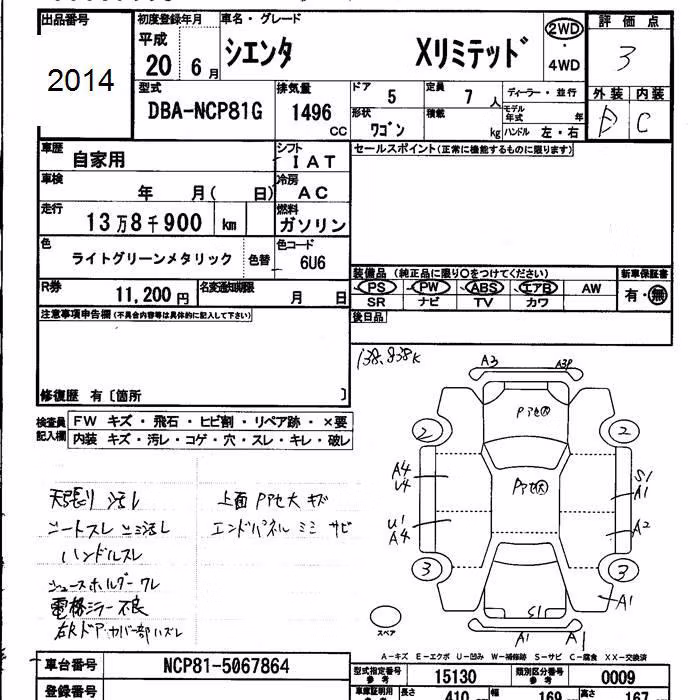 出品番号
2014
初度登録年月
平成
20 6月
車名・グレード
シエンタ Xリミテッド
2WD
・
4WD
評価点
3
型式
DBA-NCP81G
排気量
1496
CC
ドア 5
定員 7 人
ディーラー・並行
形状 ワゴン
積載 kg
モデル年式 年
ハンドル 左・右
外装 内装
C
車歴 自家用
シフト
IAT
セールスポイント(正常に機能するものに限ります)
車検 年 月( 日)
冷房
AC
走行 13万8千900 km
燃料
ガソリン
色 ライトグリーンメタリック 色替
色コード
6U6
装備品 (純正品に限り○をつけてください) 新車保証書
PS PW ABS エアB AW
有・無
SR ナビ TV カワ
R券 11,200円
名変通知期限 月 日
後日品
注意事項申告欄(不具合内容等は具体的に記入して下さい)
修復歴 有〔箇所 〕
138,838K
A3
検査員
記入欄
FW キズ・飛石・ヒビ割・リペア跡・×要
内装 キズ・汚レ・コゲ・穴・スレ・キレ・破レ
2 2
A4
S1
A1
U1
A4
A2
3 3
A1
S1
A1 A1
天張り 汚レ
シートスレ シミ汚レ
ハンドルスレ
シューズホルダーワレ
電格ミラー不良
上面 Pアセ大 キズ
エンドパネル ミミ サビ
スペア
A-キズ E-エクボ U-凹み W-補修跡 S-サビ C-腐食 XX-交換済
車台番号 NCP81-5067864
型式指定番号
参考
15130
類別区分番号
参考
0009
登録番号
車庫証明用
長さ 410 cm 幅 169 cm 高さ 167